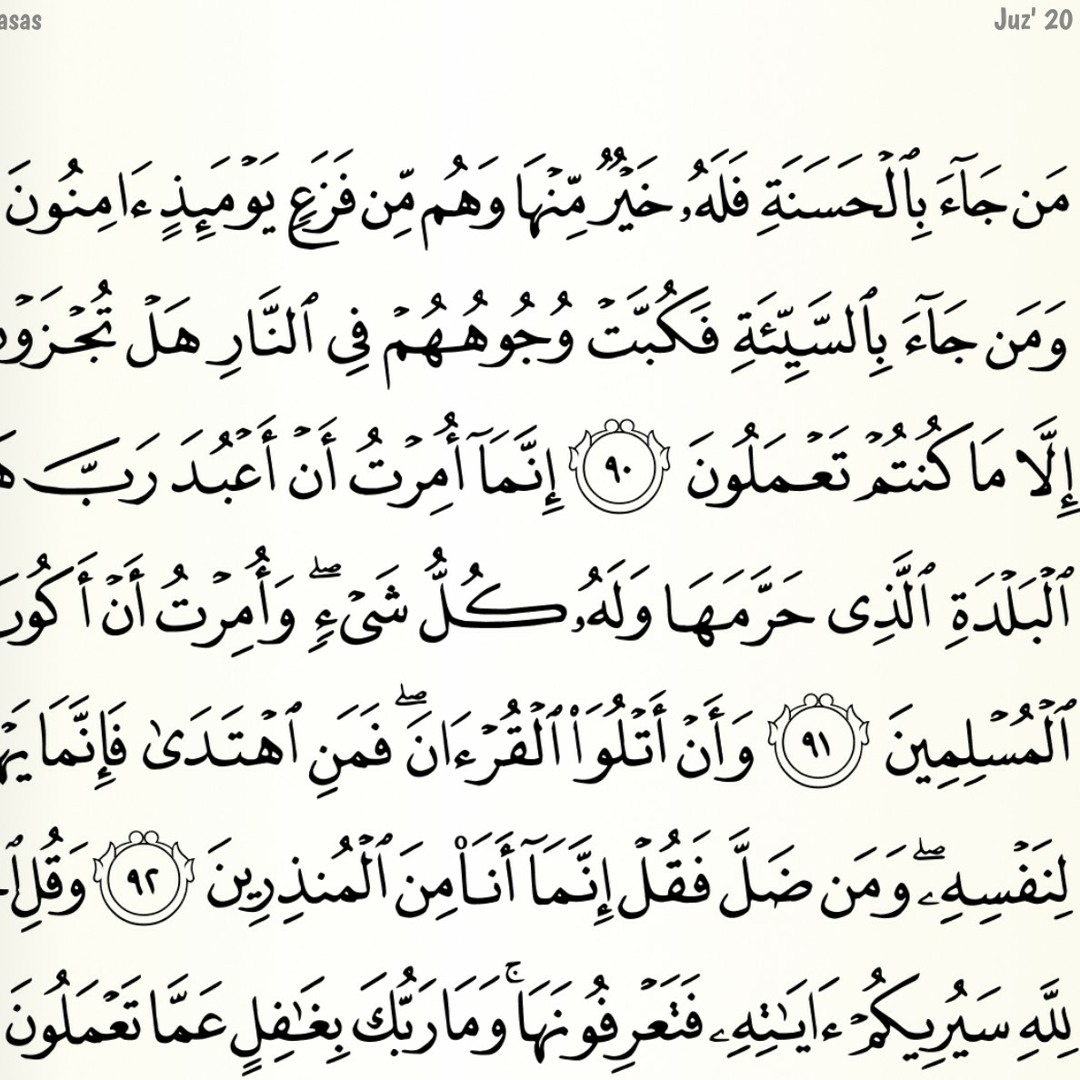 asas Juz' 20
مَن جَآءَ بِٱلْحَسَنَةِ فَلَهُۥ خَيْرٌ مِّنْهَا وَهُم مِّن فَزَعٍ يَوْمَئِذٍ ءَامِنُونَ
وَمَن جَآءَ بِٱلسَّيِّئَةِ فَكُبَّتْ وُجُوهُهُمْ فِى ٱلنَّارِ هَلْ تُجْزَوْ
إِلَّا مَا كُنتُمْ تَعْمَلُونَ ٩٠ إِنَّمَآ أُمِرْتُ أَنْ أَعْبُدَ رَبَّ
ٱلْبَلْدَةِ ٱلَّذِى حَرَّمَهَا وَلَهُۥ كُلُّ شَىْءٍ ۖ وَأُمِرْتُ أَنْ أَكُو
ٱلْمُسْلِمِينَ ٩١ وَأَنْ أَتْلُوَا۟ ٱلْقُرْءَانَ ۖ فَمَنِ ٱهْتَدَىٰ فَإِنَّمَا يَهْ
لِنَفْسِهِۦ ۖ وَمَن ضَلَّ فَقُلْ إِنَّمَآ أَنَا۠ مِنَ ٱلْمُنذِرِينَ ٩٢ وَقُلِ
لِلَّهِ سَيُرِيكُمْ ءَايَـٰتِهِۦ فَتَعْرِفُونَهَا ۚ وَمَا رَبُّكَ بِغَـٰفِلٍ عَمَّا تَعْمَلُونَ